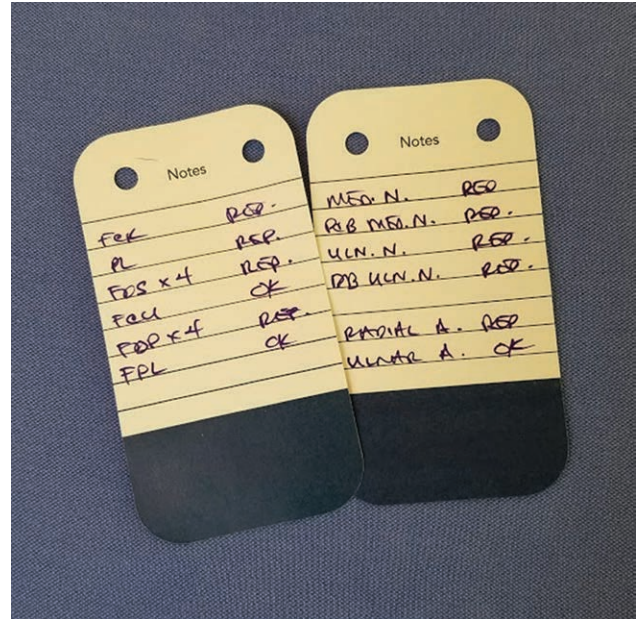 Notes
FCR REP.
PL REP.
FDS x 4 REP.
FCU OK
FDP x 4 REP.
FPL OK
Notes
MED. N. REP
PCB MED. N. REP.
ULN. N. REP.
DB ULN. N. REP.
RADIAL A. REP
ULNAR A. OK